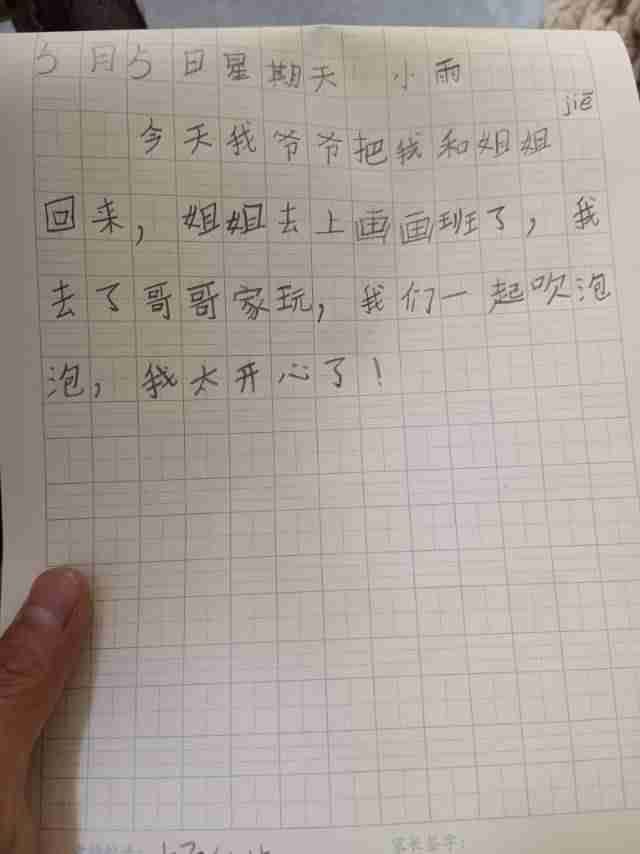 5月5日星期天 小雨
今天我爷爷把我和姐姐jiē
回来，姐姐去上画画班了，我
去了哥哥家玩，我们一起吹泡
泡，我太开心了！
家长签字：